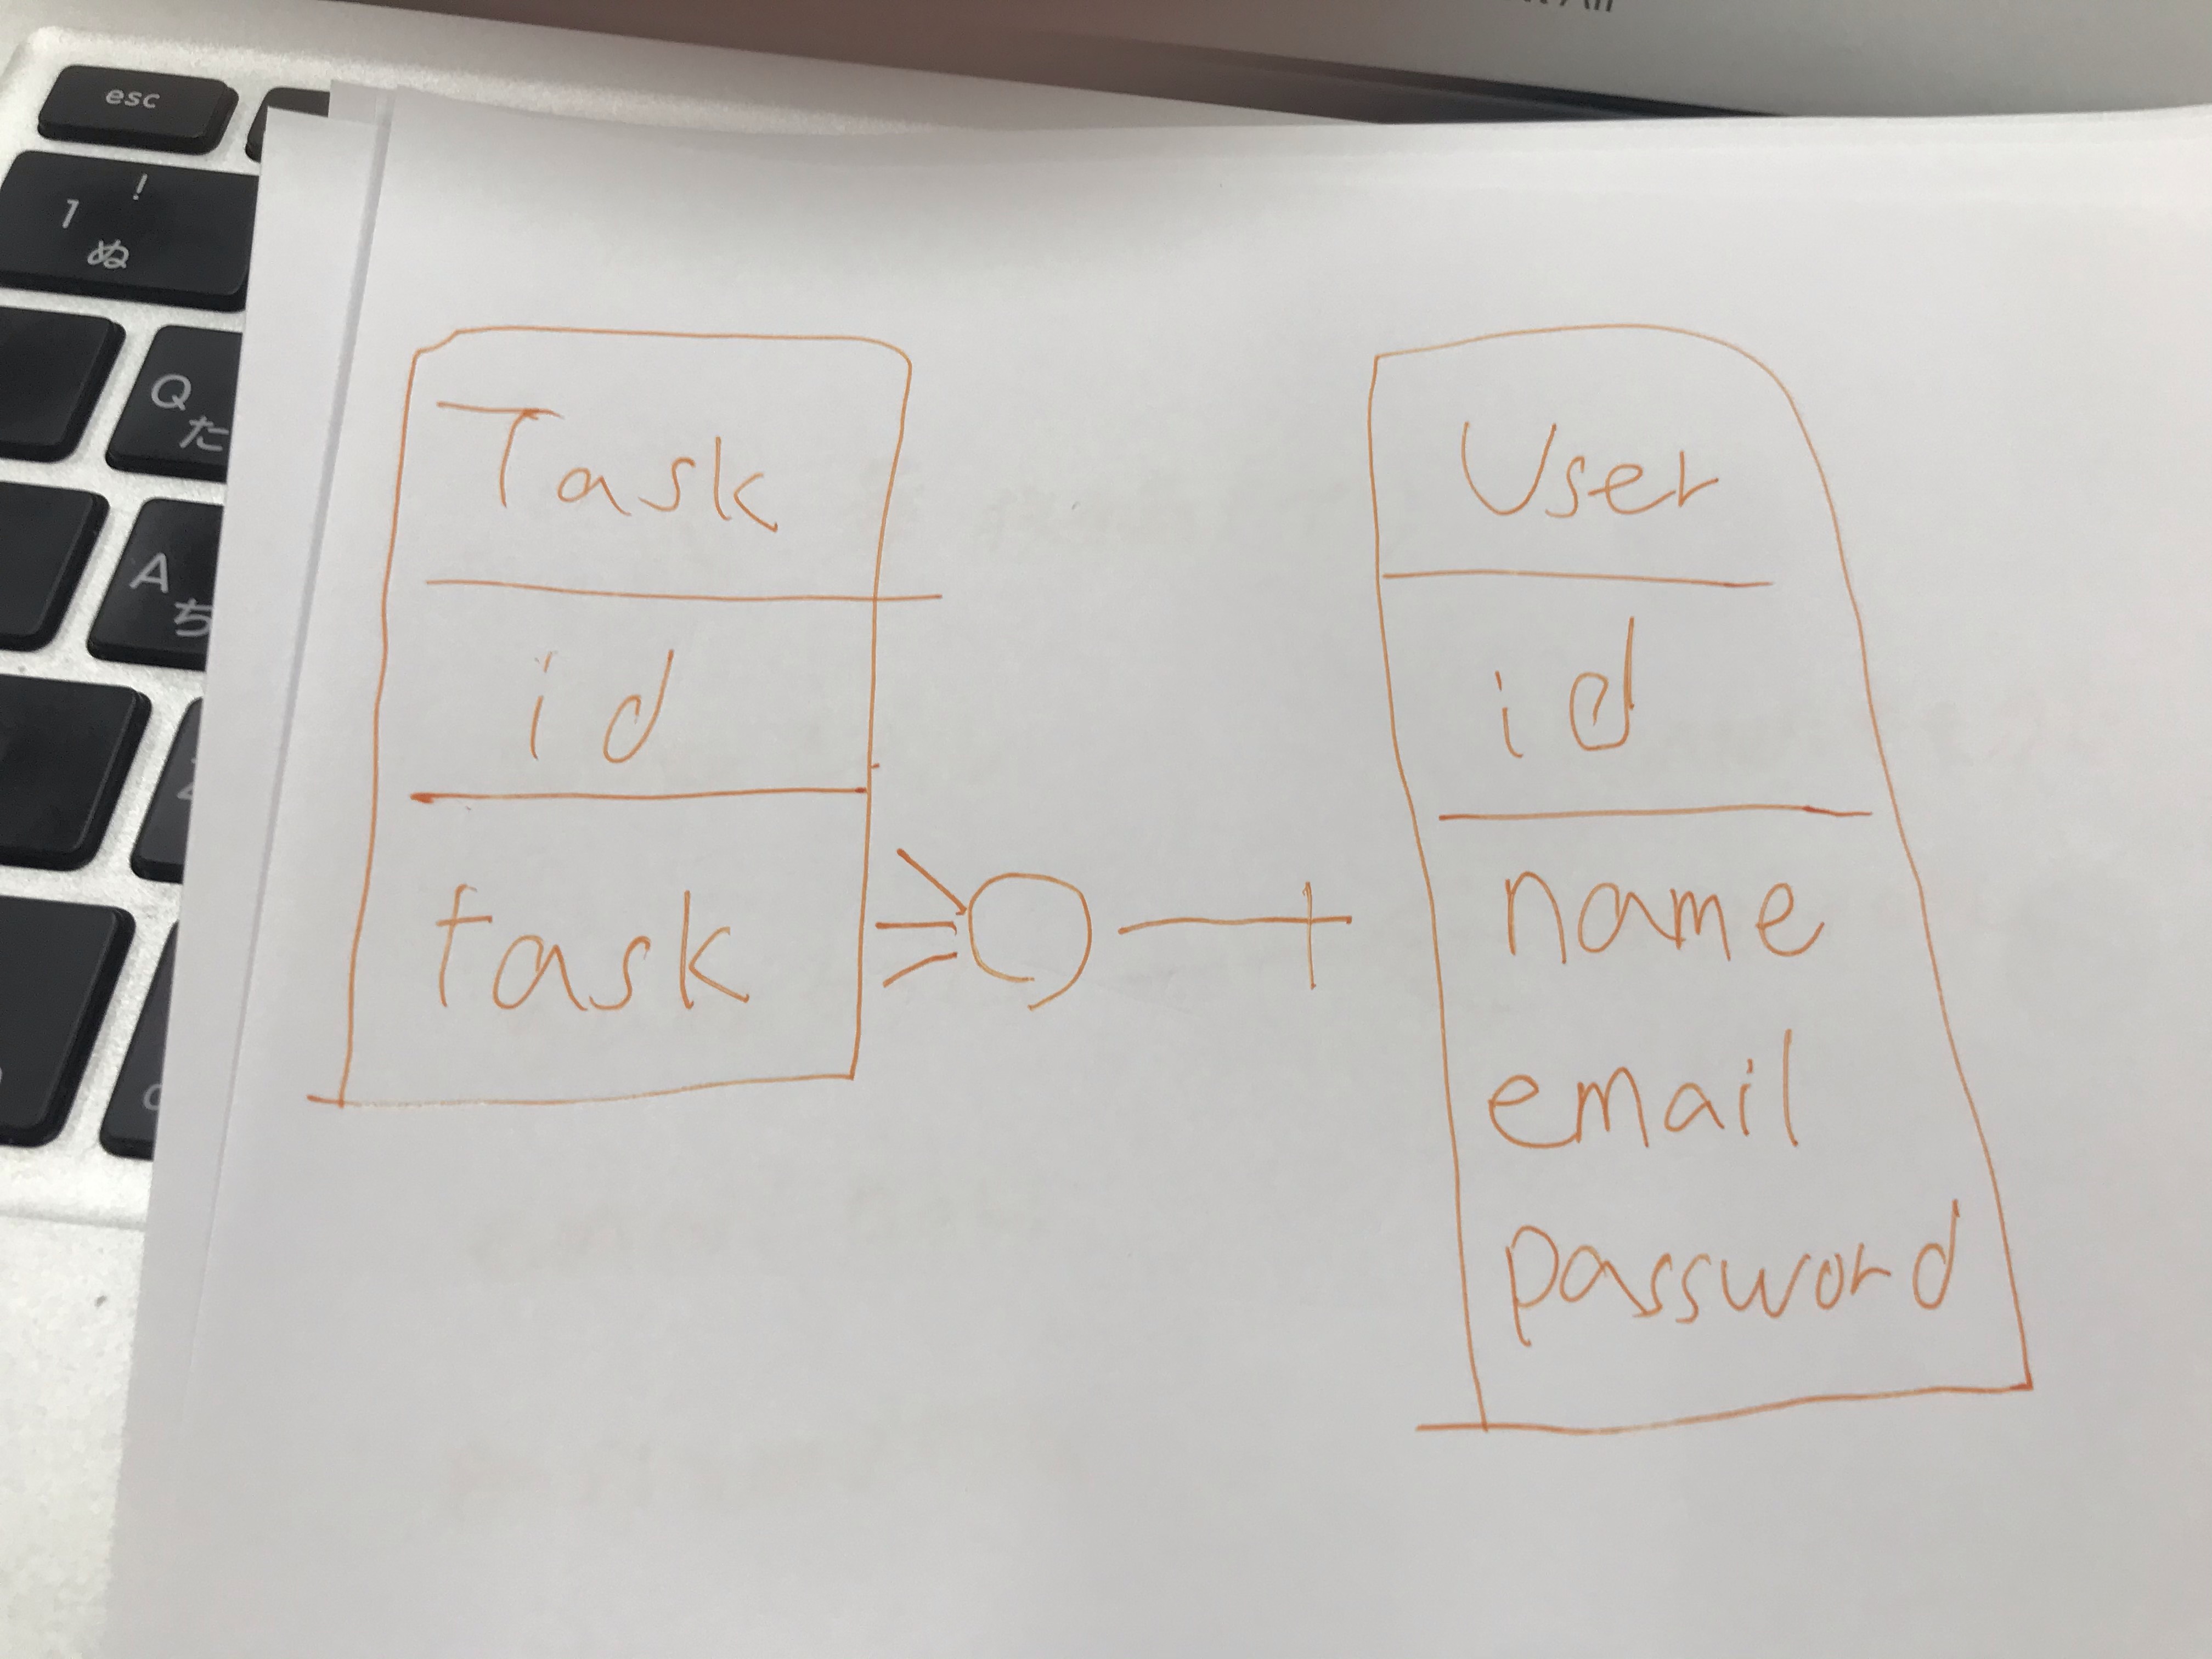 esc
!
1 ぬ
Q
た
A
ち
Task
id
task
User
id
name
email
password